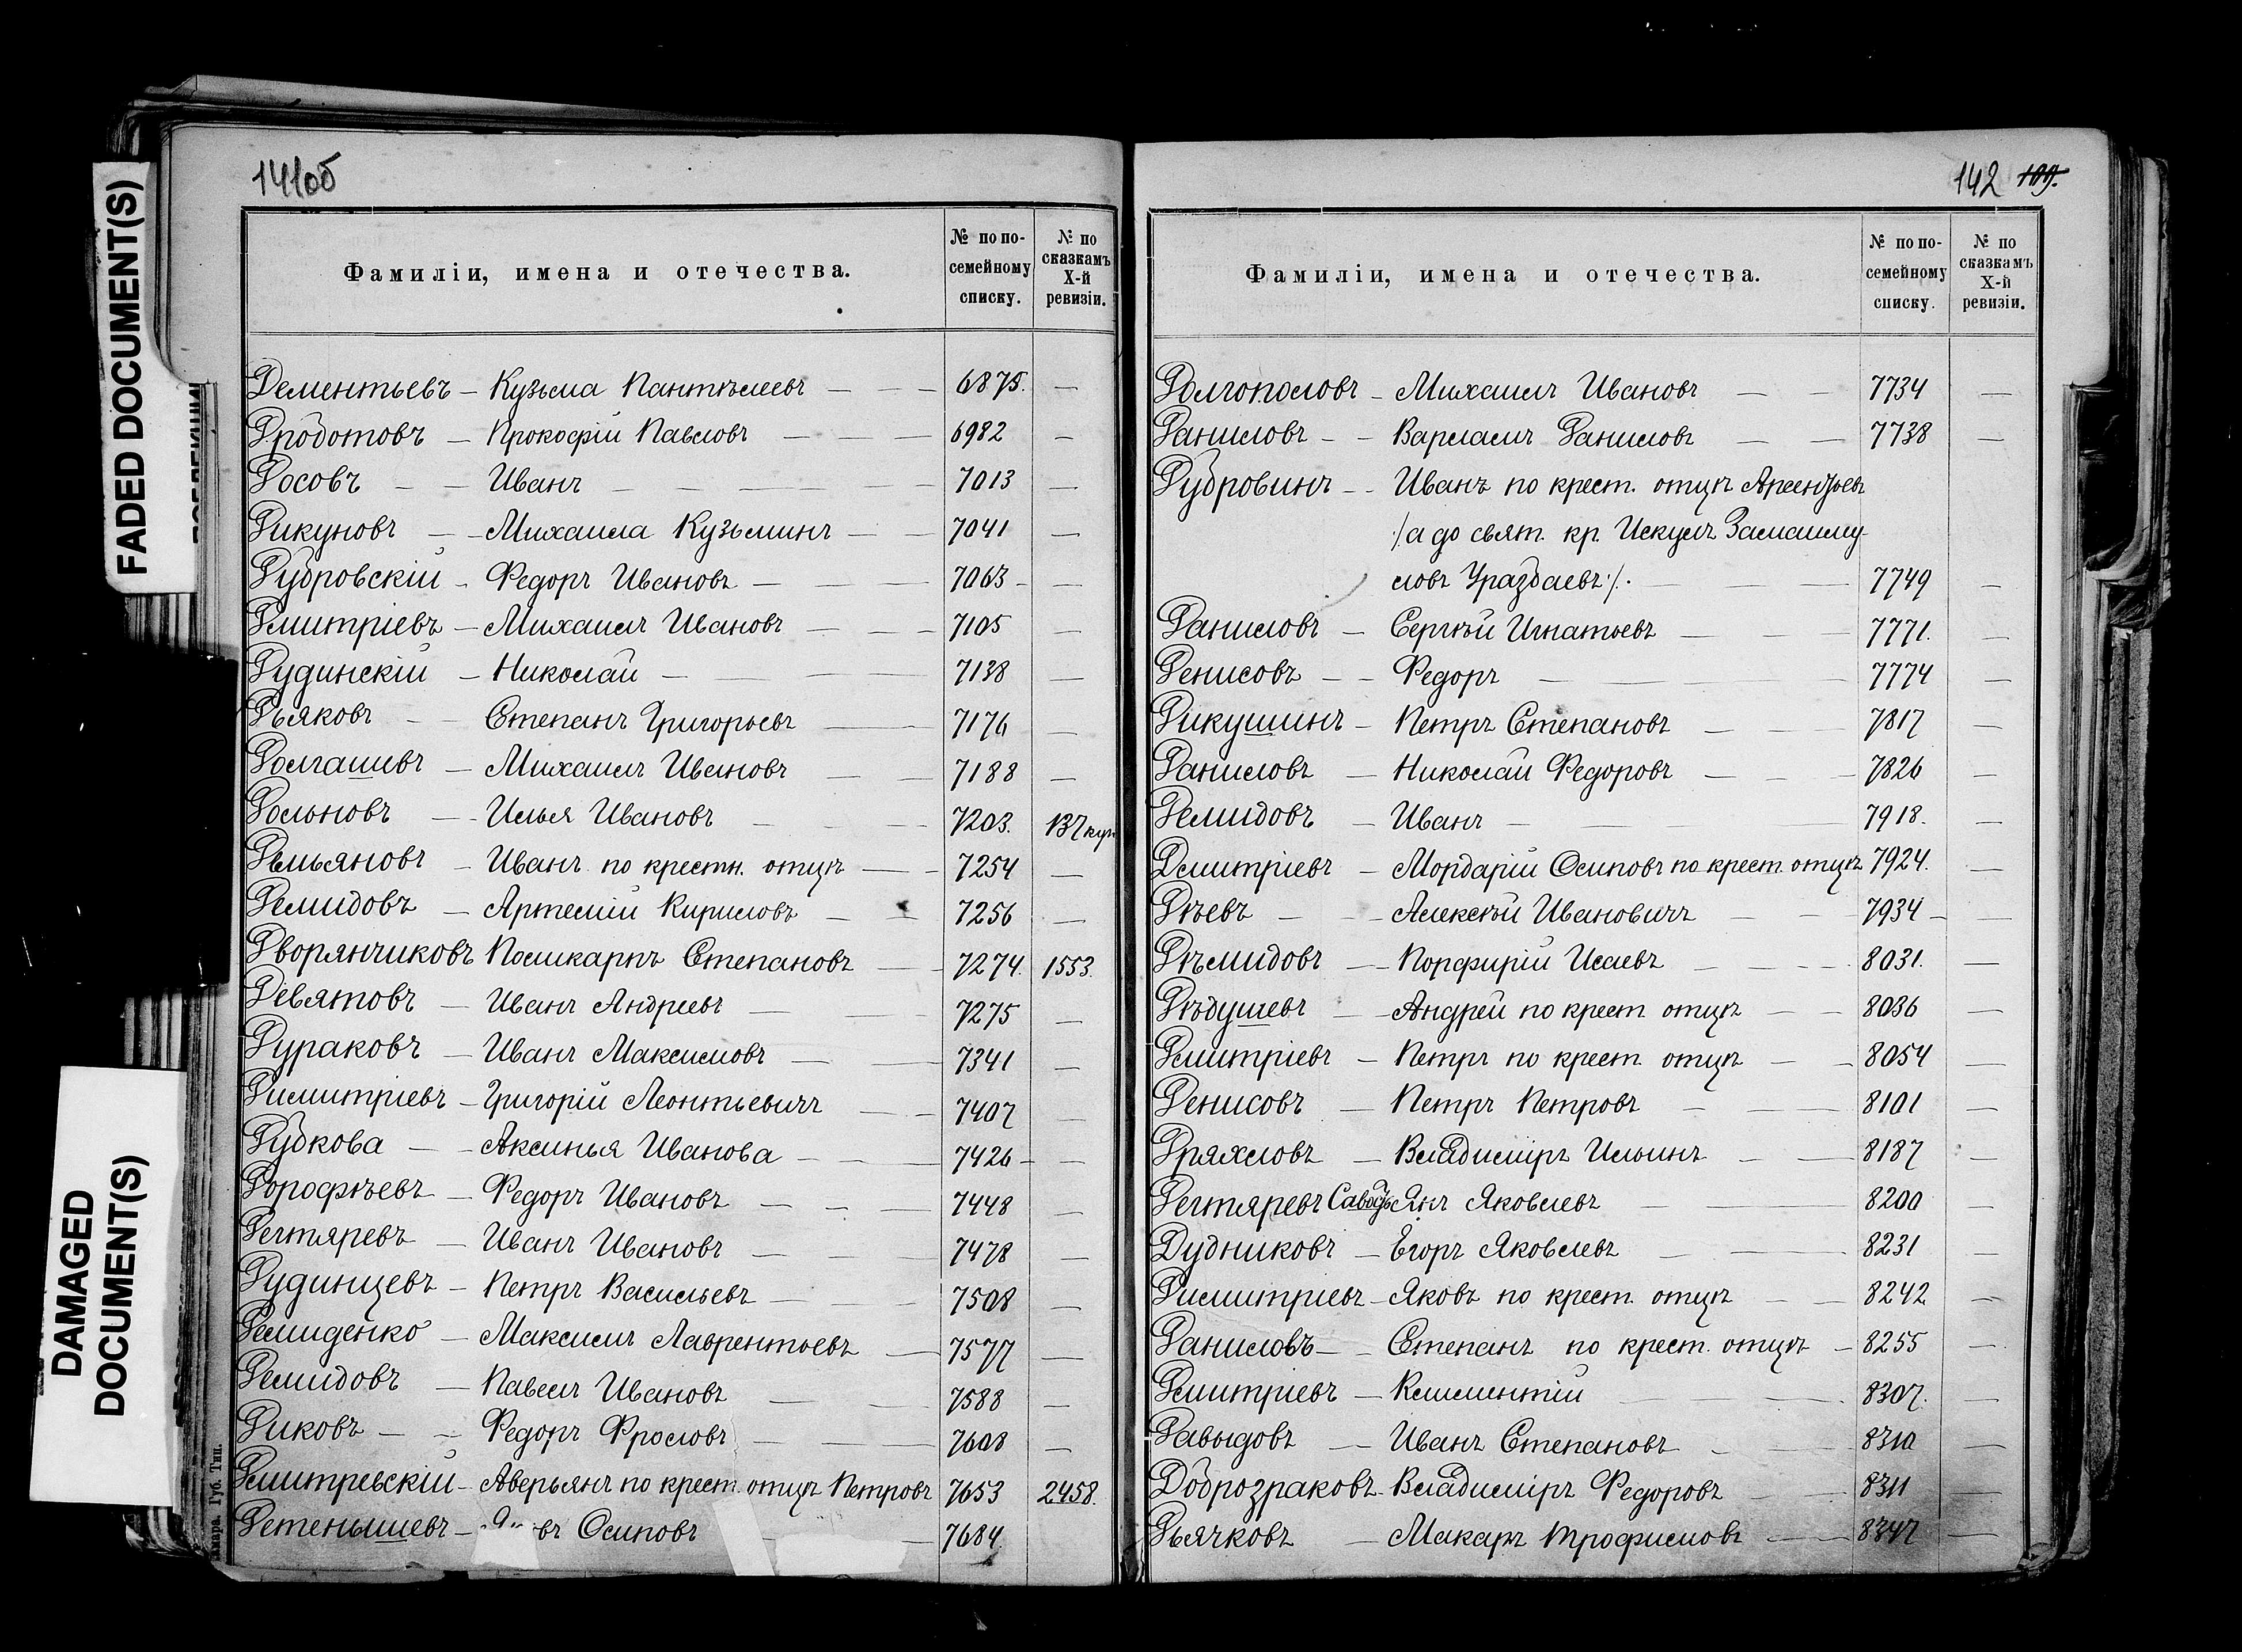 FADED DOCUMENT(S)
DAMAGED
DOCUMENT(S)
141об
Фамиліи, имена и отечества.
№ по по-
семейному
списку.
№ по
сказкамъ
X-й
ревизіи.
Дементьевъ - Кузьма Пантѣлеевъ - - - 6875. -
Дробото́въ - Прокофій Павловъ - - - 6982 -
Досовъ - - Иванъ - - - - 7013 -
Дикуновъ - - Михаила Кузьминъ - - 7041 -
Дубровскій - Федоръ Ивановъ - - - 7063 - -
Дмитріевъ - Михаилъ Ивановъ - - - 7105 -
Дудинскій - Николай - - - 7138 -
Дьяковъ - - Степанъ Григорьевъ - - 7176 -
Долгашевъ - Михаилъ Ивановъ - - 7188 -
Дольновъ - - Илья Ивановъ - - - 7203. 137 куп
Демьяновъ - Иванъ по крестн. отцѣ - - 7254 -
Демидовъ - Артемій Кириловъ - - 7256 -
Дворянчиковъ Поликарпъ Степановъ - - 7274. 1553.
Девятовъ - Иванъ Андреевъ - - 7275 -
Дураковъ - Иванъ Максимовъ - - 7341 -
Димитріевъ - Григорій Леонтьевичъ - - 7407 -
Дубкова - - Аксинья Иванова - - 7426 - -
Дорофѣевъ - Федоръ Ивановъ - - - 7448 -
Дегтяревъ - Иванъ Ивановъ - - - 7478 -
Дудинцевъ - Петръ Васильевъ - - - 7508 -
Демиденко - Максимъ Лаврентьевъ - 7577 -
Демидовъ - Павелъ Ивановъ - - 7588 -
Диковъ - - Федоръ Фроловъ - - 7608 -
Дмитревскій - Аверьянъ по крест. отцѣ Петровъ 7653 2458.
Детенышевъ - въ Осиповъ - 7684.
Губ. Тип.
142 109.
Фамиліи, имена и отечества.
№ по по-
семейному
списку.
№ по
сказкамъ
X-й
ревизіи.
Долгополовъ - Михаилъ Ивановъ - - 7734 -
Даниловъ - - Варлаамъ Даниловъ - - 7738 -
Дубровинъ - - Иванъ по крест. отцѣ Арсентьевъ
/:а до свят. кр. Искулъ Замашму-
ловъ Уразбаевъ:/. - - 7749 -
Даниловъ - Сергѣй Игнатьевъ - - - 7771. -
Денисовъ - - Федоръ - - - 7774 -
Дикушинъ - Петръ Степановъ - - - 7817 -
Даниловъ - Николай Федоровъ - - - 7826 -
Демидовъ - Иванъ - - - 7918. -
Дмитріевъ - Мордарій Осиповъ по крест. отцѣ 7924. -
Дѣевъ - - - Алексѣй Ивановичъ - - 7934 - -
Дѣмидовъ - - Порфирій Исаевъ - - - 8031. -
Дѣдушевъ - - Андрей по крест отцѣ - - 8036 -
Дмитріевъ - Петръ по крест отцѣ - - 8054 -
Денисовъ - Петръ Петровъ - - - 8101 -
Дряхловъ - Владиміръ Ильинъ - - 8187 -
Дегтяревъ Янъ Яковлевъ - - 8200 -
Дудниковъ - Егоръ Яковлевъ - - 8231 -
Димитріевъ - Яковъ по крест. отцѣ - - 8242 -
Даниловъ - - Степанъ по крест. отцѣ - 8255 -
Дмитріевъ - Климентій - - 8307. -
Давыдовъ - Иванъ Степановъ - - 8310 -
Доброзраковъ - Владиміръ Федоровъ - - 8311 -
Дьячковъ - Макаръ Трофимовъ - - 8347 -